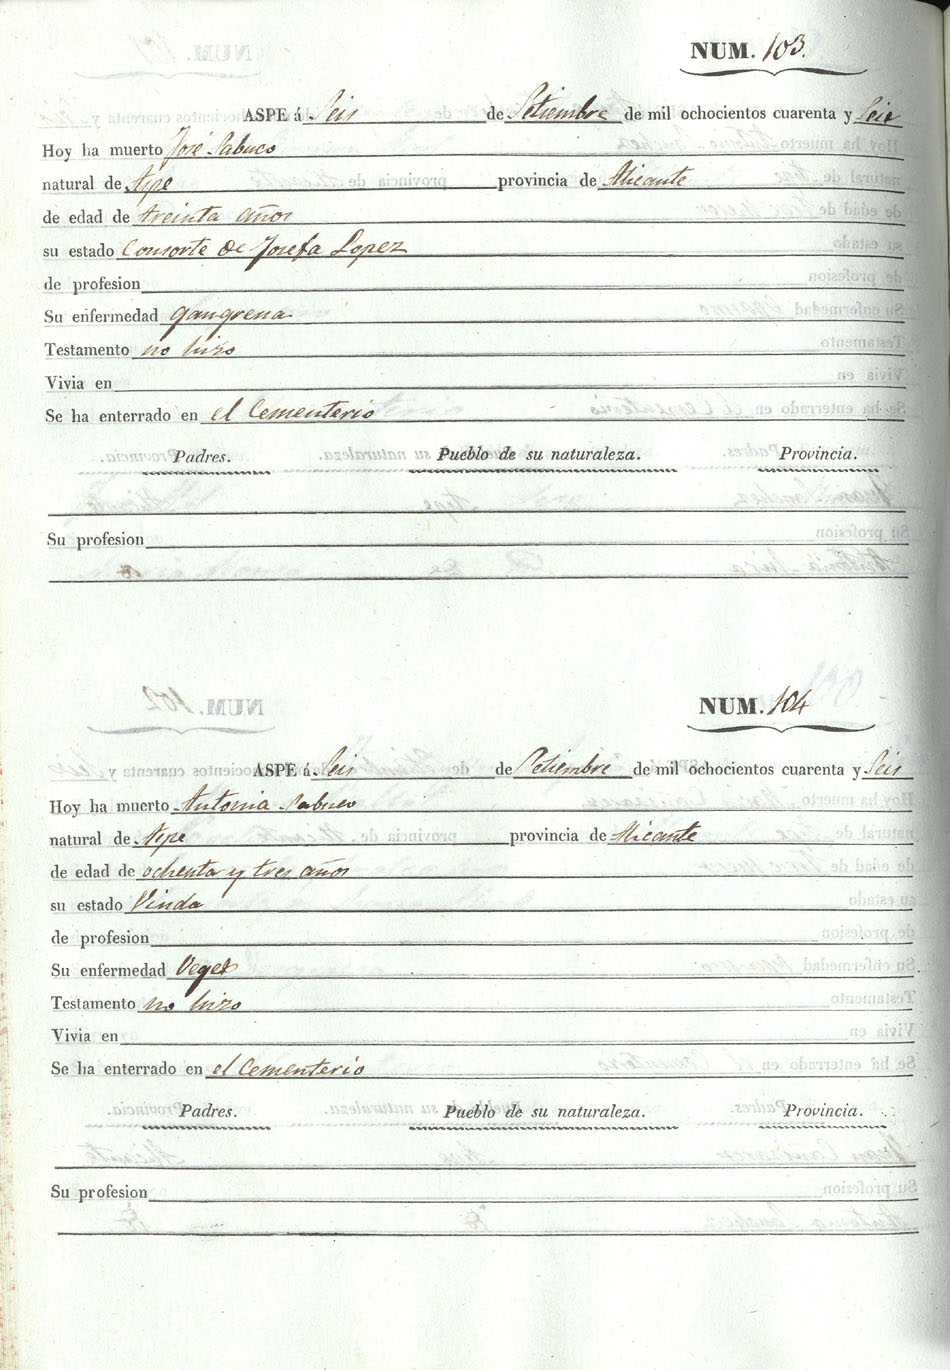 NUM. 103.
ASPE á Seis de Setiembre de mil ochocientos cuarenta y Seis
Hoy ha muerto José Sabuco
natural de Aspe provincia de Alicante
de edad de treinta años
su estado Consorte de Josefa Lopez
de profesion
Su enfermedad gangrena
Testamento no hizo
Vivia en
Se ha enterrado en el Cementerio
Padres. Pueblo de su naturaleza. Provincia.
Su profesion
NUM. 104
ASPE á Seis de Setiembre de mil ochocientos cuarenta y Seis
Hoy ha muerto Antonia Sabuco
natural de Aspe provincia de Alicante
de edad de ochenta y tres años
su estado Viuda
de profesion
Su enfermedad Veget
Testamento no hizo
Vivia en
Se ha enterrado en el Cementerio
Padres. Pueblo de su naturaleza. Provincia.
Su profesion